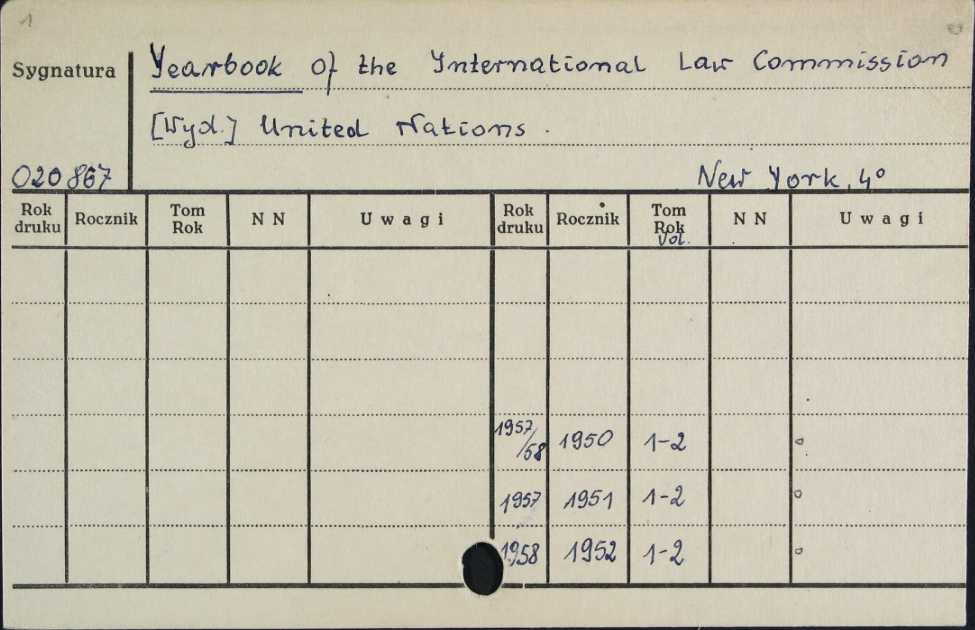 1
Sygnatura
Yearbook of the International Law Commission
[Wyd.] United Nations.
020867
New York, 4°
Rok druku Rocznik Tom Rok N N Uwagi Rok druku Rocznik Tom Rok Vol. N N Uwagi
1957/58 1950 1-2
1957 1951 1-2
1958 1952 1-2